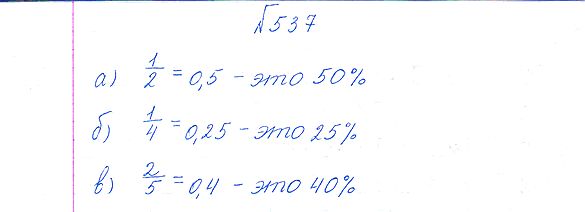 №537
а) 1/2 = 0,5 - это 50%
б) 1/4 = 0,25 - это 25%
в) 2/5 = 0,4 - это 40%